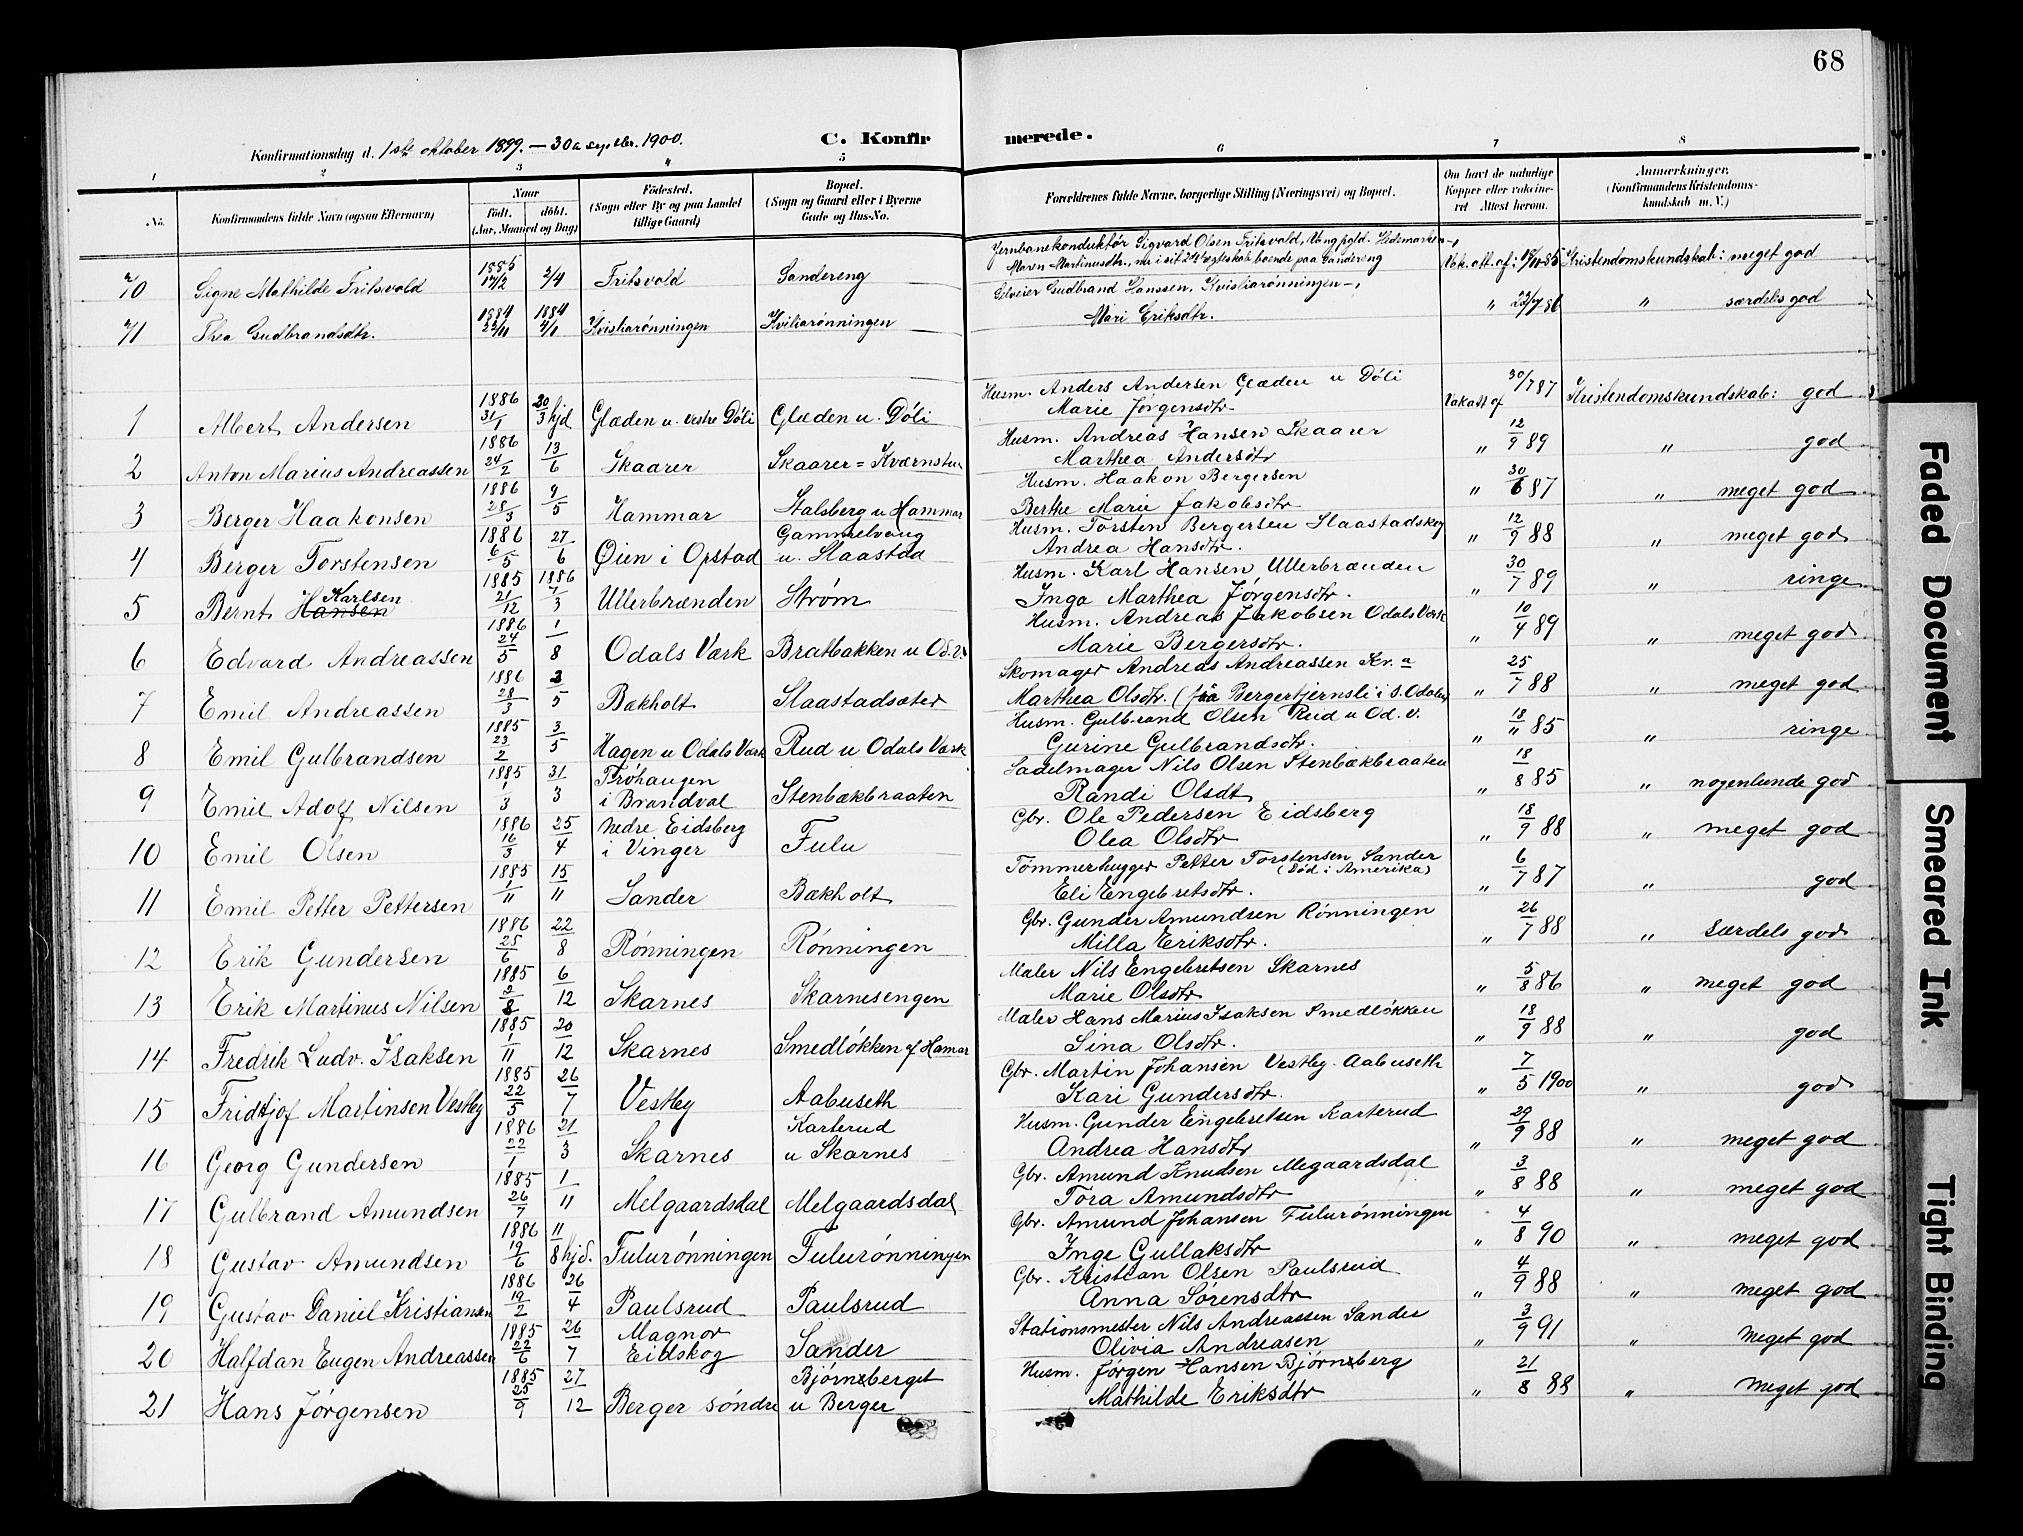 68
Konfirmationsdag d. 1ste oktober 1899. — 30te septbr. 1900.
C. Konfirmerede.
1 2 3 4 5 6 7 8
No.
Konfirmandens fulde Navn (ogsaa Efternavn)
Naar
födt. döbt.
(Aar, Maaned og Dag)
Födested.
(Sogn eller By og paa Landet
tillige Gaard)
Bopæl.
(Sogn og Gaard eller i Byerne
Gade og Hus-No.
Forældrenes fulde Navne, borgerlige Stilling (Næringsvei) og Bopæl.
Om havt de naturlige
Kopper eller vakcine-
ret Attest herom.
Anmærkninger.
(Konfirmandens Kristendoms-
kundskab m. V.)
70 Signe Mathilde Fritsvold 1885 17/2 2/4 Fritsvold Sandereng Jernbanekonduktör Sigvard Olsen Fritsvold, Vang pgld. Hedemarken –,
Maren Martinusdtr., nu i sit 2det ægteskab boende paa Sandereng Vak. att. af: 10/11 85 Kristendomskundskab: meget god
71 Thea Gudbrandsdtr. 1884 22/11 1884 Kvisliarönningen Kviliarönningen Selveier Gudbrand Hanssen, Kvisliarönningen –,
Mari Eriksdtr. " 23/7 86 " særdeles god
1 Albert Andersen 1886 31/1 20/3 hjd Glæden u. vestre Döli Glæden u. Döli Husm. Anders Andersen Glæden u Döli
Marie Jörgensdtr Vakatt af 30/7 87 Kristendomskundskab: god
2 Anton Marius Andreassen 1886 24/2 13/6 Skaarer Skaarer = Kværnstuen Husm. Andreas Hansen Skaarer
Marthea Andersdtr " 12/9 89 " god
3 Berger Haakonsen 1886 28/3 9/5 Hammar Stalsberg u Hammar Husm. Haakon Bergersen
Berthe Marie Jakobsdtr " 30/6 87 " meget god
4 Berger Torstensen 1886 6/5 27/6 Øien i Opstad Gammelvang
u. Slaastad Husm. Torsten Bergersen Slaastadskog
Andrea Hansdtr. " 12/9 88 " meget god
5 Bernt Hansen Karlsen 1885 21/12 1886 7/3 Ullerbrænden Ström Husm. Karl Hansen Ullerbrænden
Inga Marthea Jörgensdtr. " 30/7 89 " ringe
6 Edvard Andreassen 1886 24/5 1/8 Odals Værk Bratbakken u Od. V. Husm. Andreas Jakobsen Odals Værk
Marie Bergersdtr. " 10/4 89 " meget god
7 Emil Andreassen 1886 28/3 2/5 Bækholt Slaastadsæter Skomager Andreas Andreassen Kr.a
Marthea Olsdtr. (fra Bergertjernsli i S. Odalen) " 25/7 88 " meget god
8 Emil Gulbrandsen 1885 23/2 3/5 Hagen u Odals Værk Rud u Odals Værk Husm. Gulbrand Olsen Rud u Od. V.
Gurine Gulbrandsdtr. " 18/11 85 " ringe
9 Emil Adolf Nilsen 1885 1/3 31/3 Pröhaugen
i Brandval Stenbækbraaten Sadelmager Nils Olsen Stenbækbraaten
Randi Olsdt " 18/8 85 " nogenlunde god
10 Emil Olsen 1886 16/3 25/4 Nedre Eidsberg
i Vinger Fulu Gbr. Ole Pedersen Eidsberg
Olea Olsdtr " 18/9 88 " meget god
11 Emil Petter Pettersen 1885 1/11 15/11 Sander Bækholt Tömmerhugger Petter Torstensen Sander
(Död i Amerika)
Eli Engebretsdtr. " 6/7 87 " god
12 Erik Gundersen 1886 25/6 22/8 Rönningen Rönningen Gbr. Gunder Amundsen Rönningen
Milla Eriksdtr. " 26/7 88 " særdels god
13 Erik Martinus Nilsen 1885 2/8 6/12 Skarnes Skarnesengen Maler Nils Engebretsen Skarnes
Marie Olsdtr " 5/8 86 " meget god
14 Fredrik Ludv. Isaksen 1885 1/11 20/12 Skarnes Smedlökken af Hamar Maler Hans Marius Isaksen Smedlökken
Sina Olsdtr. " 18/9 88 " god
15 Fridtjof Martinsen Vestby 1885 22/5 26/7 Vestby Aabuseth Gbr. Martin Johansen Vestby - Aabuseth
Kari Gundersdtr. " 7/5 1900 " god
16 Georg Gundersen 1886 22/1 21/3 Skarnes Karterud
u Skarnes Husm. Gunder Engebretsen Karterud
Andrea Hansdtr " 29/9 88 " meget god
17 Gulbrand Amundsen 1885 26/7 1/11 Melgaardsdal Melgaardsdal Gbr. Amund Knudsen Megaardsdal
Tora Amundsdtr " 3/8 88 " meget god
18 Gustav Amundsen 1886 19/6 11/8 hjd. Fulurönningen Fulurönningen Gbr. Amund Johansen Fulurönningen
Inge Gullaksdtr " 4/8 90 " meget god
19 Gustav Daniel Kristiansen 1886 19/2 26/4 Paulsrud Paulsrud Gbr. Kristian Olsen Paulsrud
Anna Sörensdtr " 4/9 88 " meget god
20 Halfdan Eugen Andreassen 1885 22/6 26/7 Magnor
Eidskog Sander Stationsmester Nils Andreassen Sander
Olivia Andreasen " 3/9 91 " Meget god
21 Hans Jörgensen 1885 25/9 27/12 Berger söndre Björnsberget
u Berger Husm. Jörgen Hansen Björnsberg
Mathilde Eriksdtr " 21/8 88 " Meget god
Faded Document
Smeared Ink
Tight Binding